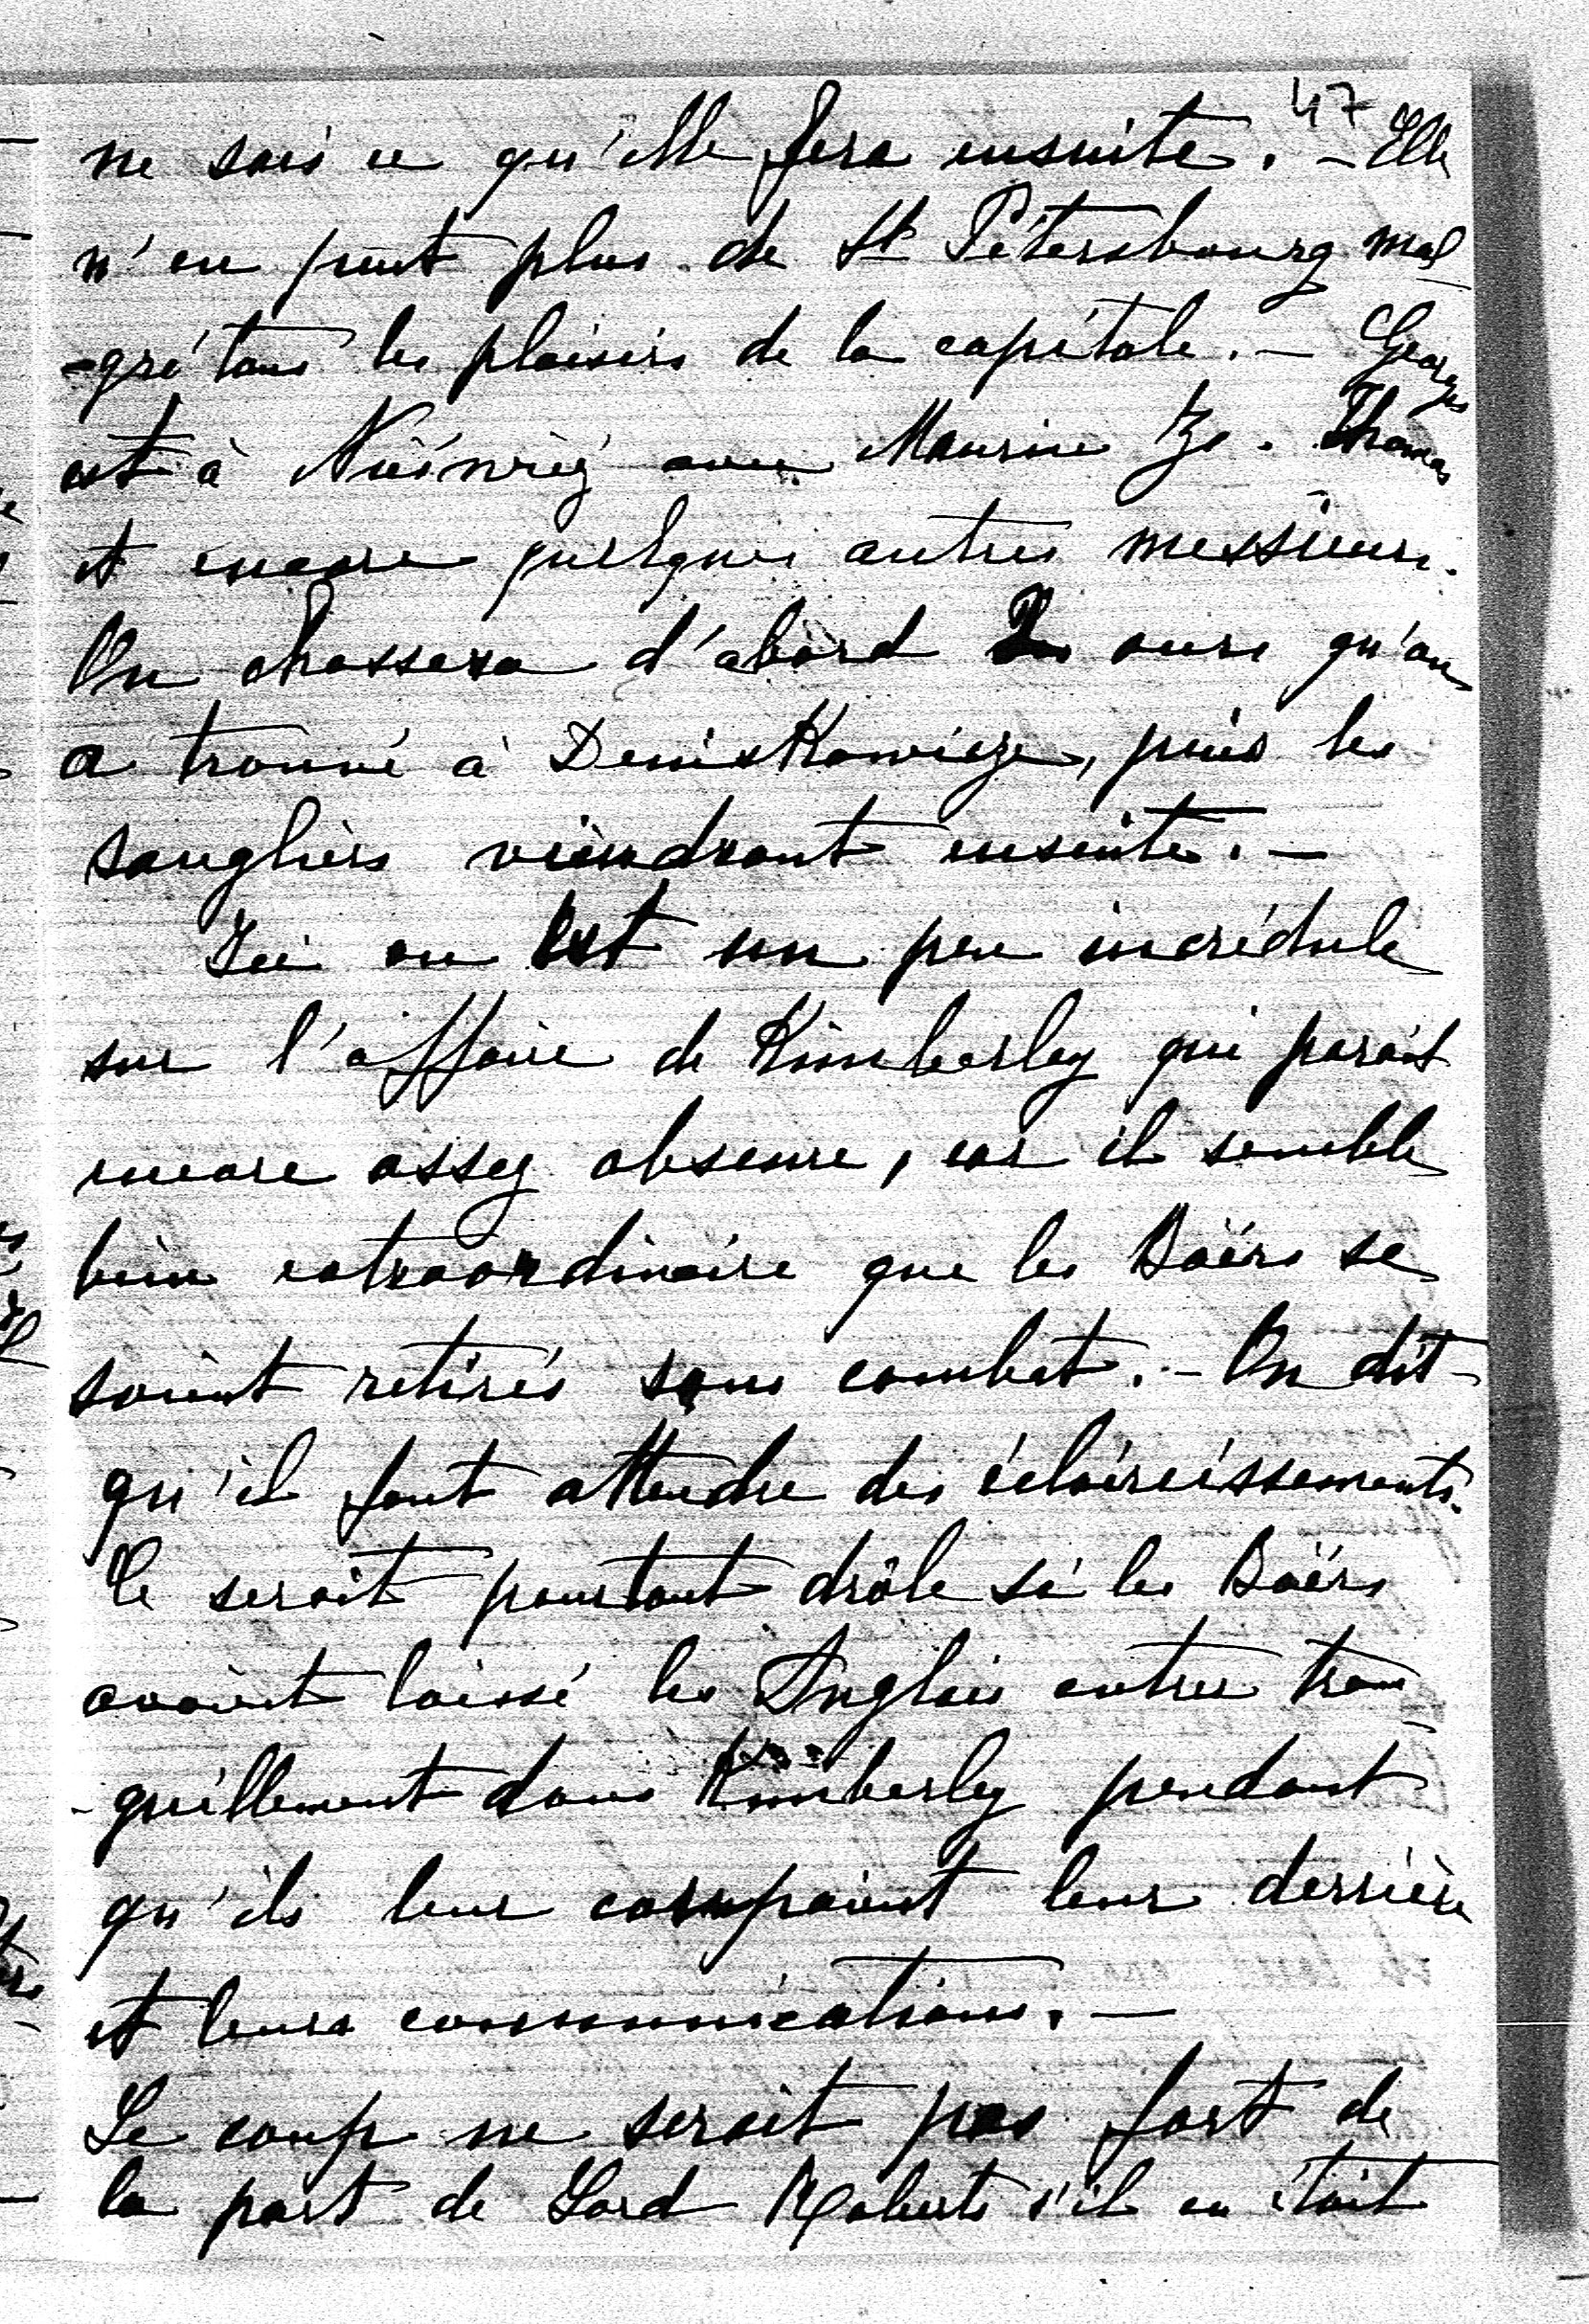 47
ne sais ce qu'elle fera ensuite. – Elle
n'en peut plus de St Pétersbourg mal
-gré tous les plaisirs de la capitale. – Georges
est à Nieśwież avec Maurice Th. Thomas
et encore quelques autres messieurs.
On chassera d'abord 2 ours qu'on
a trouvé à Deniskowicze, puis les
sangliers viendront ensuite. –
Ici on est un peu incrédule
sur l'affaire de Kimberley qui parait
encore assez obscure, car il semble
bien extraordinaire que les Boërs se
soient retirés sans combat. – On dit
qu'il faut attendre des éclaircissements.
Ce serait pourtant drôle si les Boërs
avaient laissé les Anglais entrer tran
-quillement dans Kimberley pendant
qu'ils leur coupaient leur derrière
et leurs communications. –
Le coup ne serait pas fort de
la part de Lord Roberts s'il en était